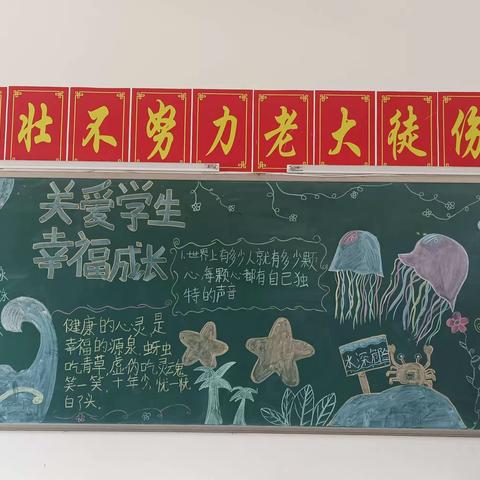 壮不努力老大徒伤
关爱学生
幸福成长
1.世界上有多少人就有多少颗
心,每颗心都有自己独
特的声音
健康的心灵是
幸福的源泉,蚜虫
吃青草,虚伪吃灵魂
笑一笑,十年少,忧一忧
白了头.
水深危险